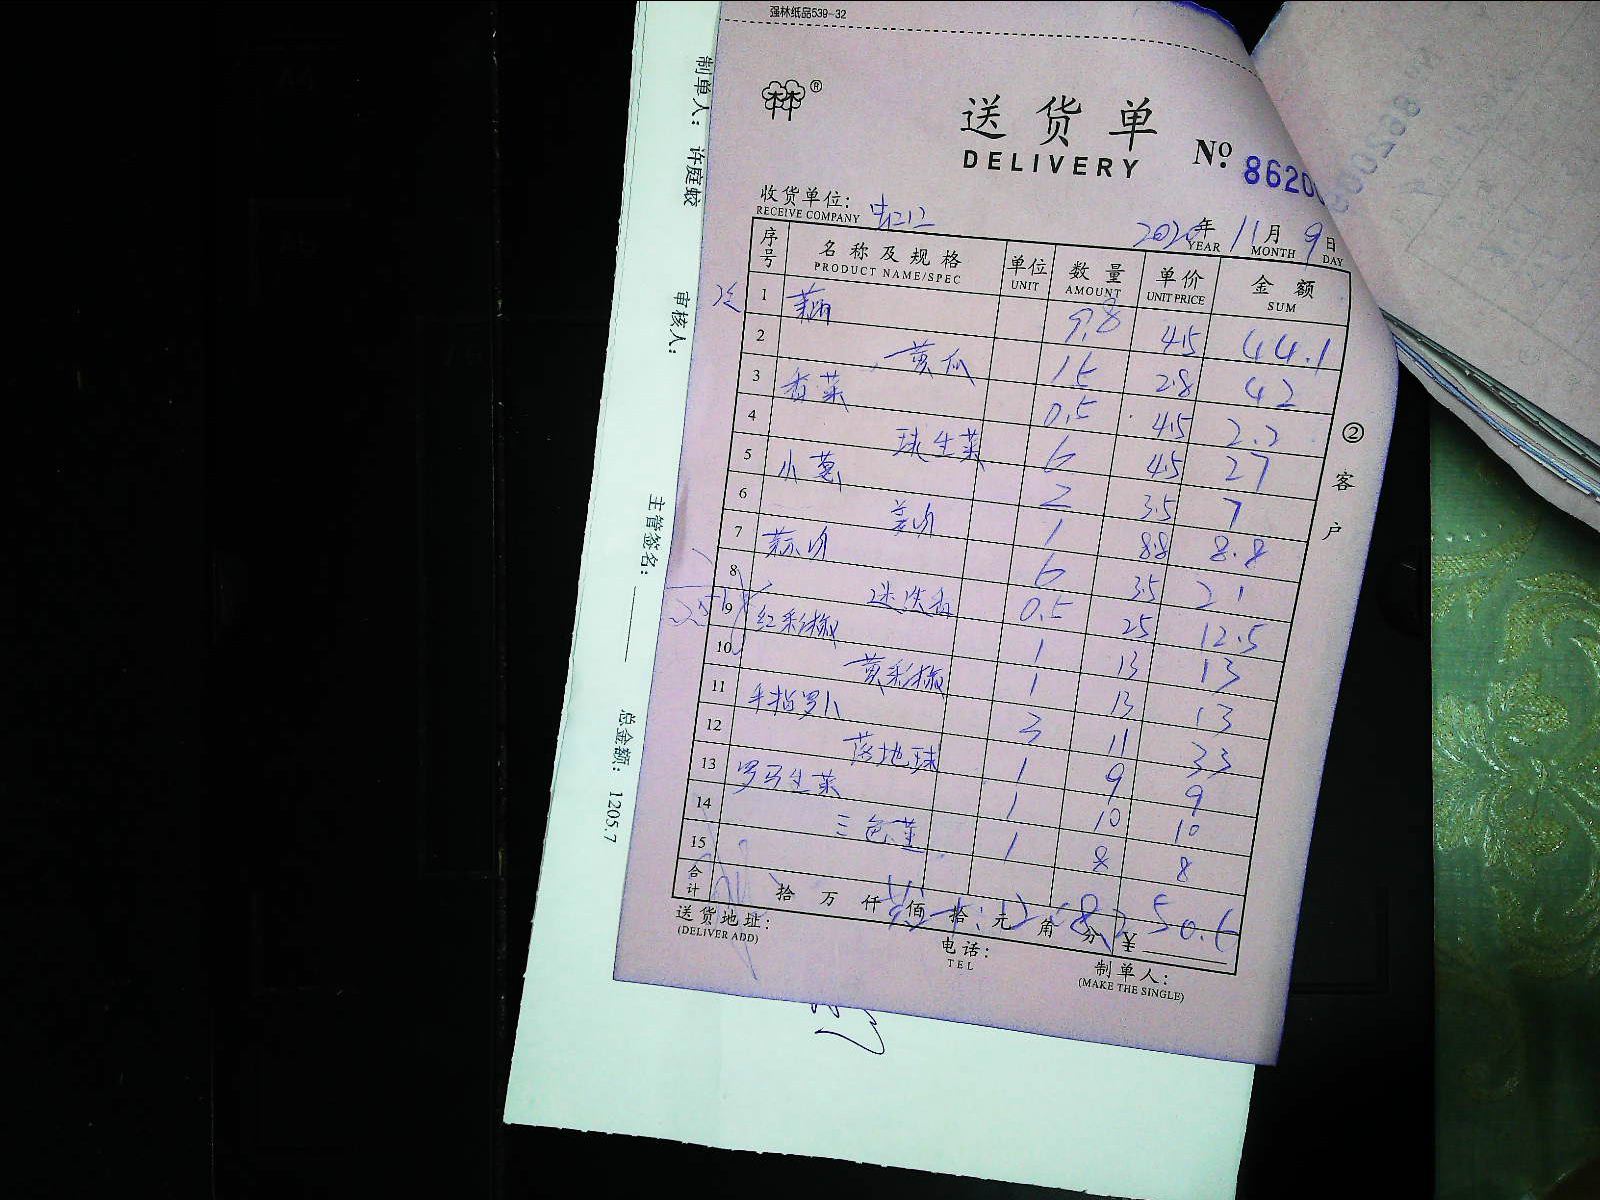 强林纸品539-32
送货单
DELIVERY
No. 8620
收货单位: 虹口
RECEIVE COMPANY
2020年 11月 9日
YEAR MONTH DAY
序号 名称及规格 单位 数量 单价 金额
PRODUCT NAME/SPEC UNIT AMOUNT UNIT PRICE SUM
1 9.8 4.5 44.1
2 黄瓜 15 2.8 42
3 香菜 0.5 4.5 2.2
4 球生菜 6 4.5 27
5 小葱 2 3.5 7
6 1 8.8 8.8
7 6 3.5 21
8 迷迭香 0.5 25 12.5
9 红彩椒 1 13 13
10 黄彩椒 1 13 13
11 手指罗卜 3 11 33
12 落地球 1 9 9
13 罗马生菜 1 10 10
14 三色堇 1 8 8
15
合计 拾 万 仟 佰 拾 元 角 分 ¥ 250.6
送货地址:
(DELIVER ADD)
电话:
TEL
制单人:
(MAKE THE SINGLE)
②客户
制单人: 许庭蛟
审核人:
主管签名:
总金额: 1205.7